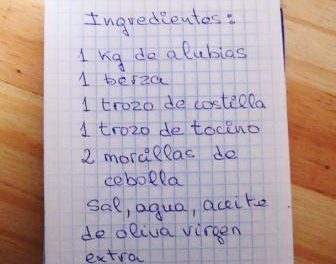 Ingredientes:
1 kg de alubias
1 berza
1 trozo de costilla
1 trozo de tocino
2 morcillas de
cebolla
Sal, agua, aceite
de oliva virgen
extra